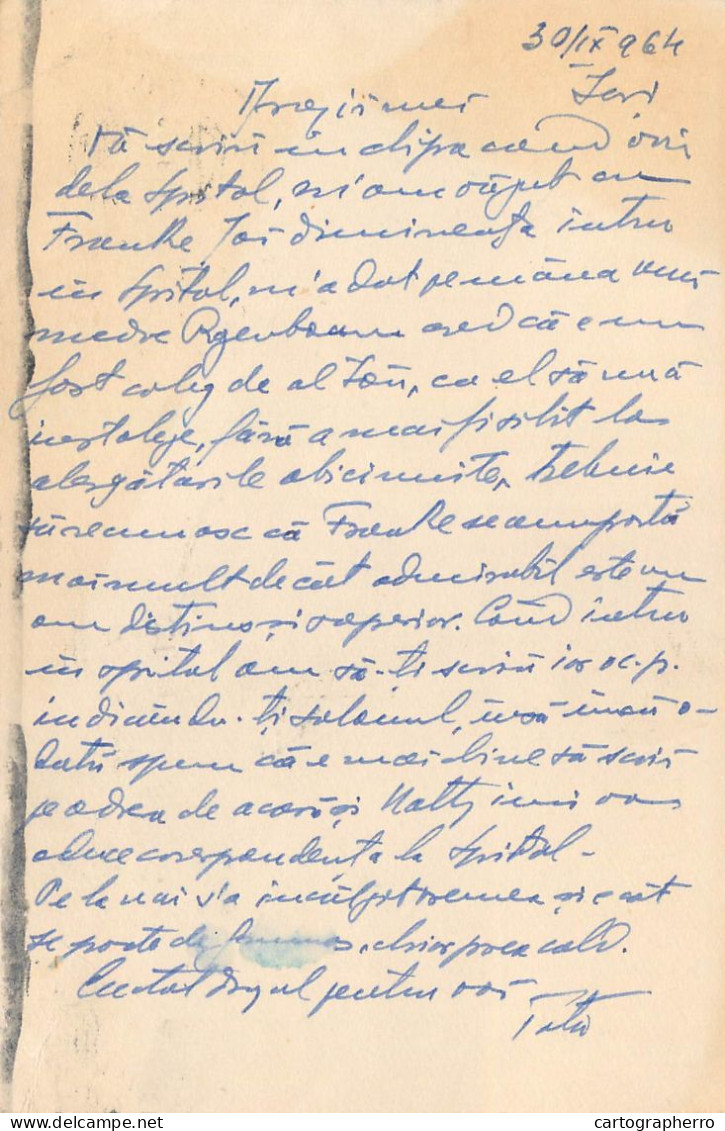 30/IX 964
Iași
Dragii mei
Vă scriu în clipa când viu
dela Spital, ni'am văzut cu
Franke, Joi dimineața intru
în Spital, m'a dat pe mâna unui
cred că e un
fost coleg de al , ca el să mă
fără a mai fi silit la
alergăturile obicinuite, trebuie
să recunosc că Franke se comportă
mai mult decât admirabil este un
om distins și superior. Când intru
în spital am să-ți scriu o c.p.
indicându-ți salonul, însă încă o-
dată spun că e mai bine să scrii
pe adresa de acasă și Matty îmi va
aduce corespondența la Spital -
Pe la noi s'a încălzit vremea și cât
se poate de frumos, chiar prea cald.
Cu tot dragul pentru voi
Tata
cartographerro